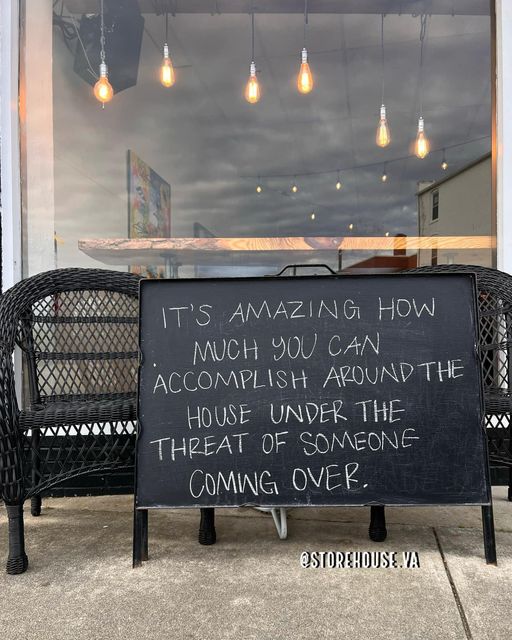 IT'S AMAZING HOW
MUCH YOU CAN
ACCOMPLISH AROUND THE
HOUSE UNDER THE
THREAT OF SOMEONE
COMING OVER.
@STOREHOUSE.VA